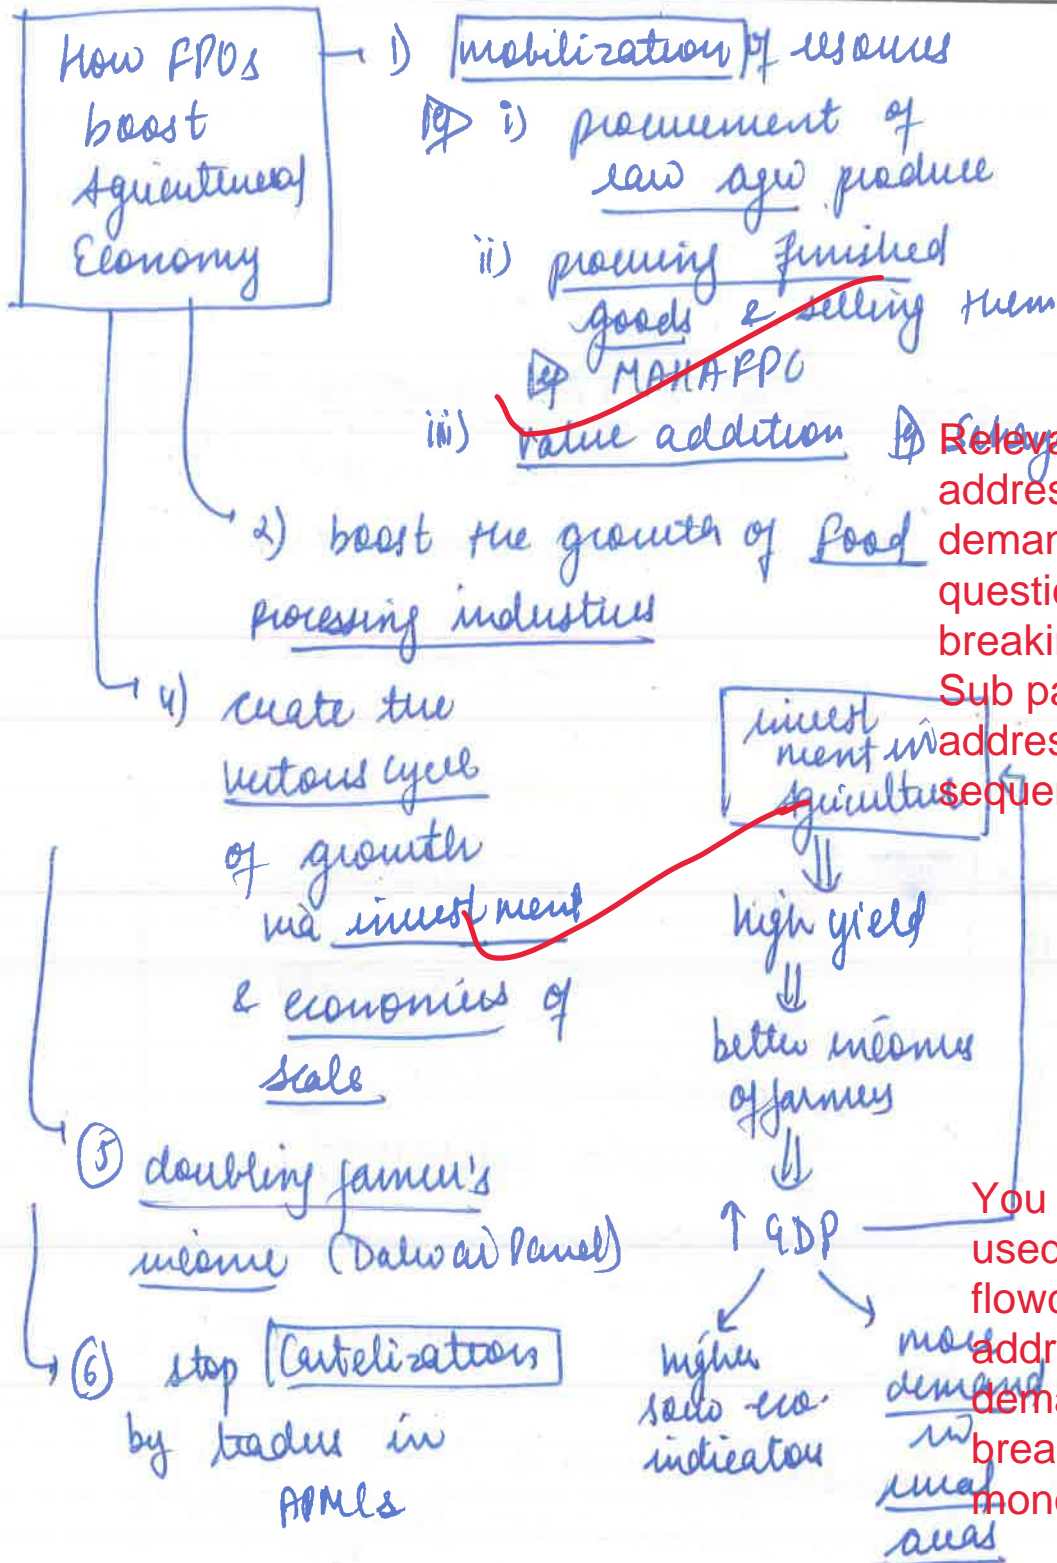 How FPOs
boost
Agricultural
Economy
1) mobilization of resources
eg i) procurement of
raw agro produce
ii) procuring finished
goods & selling them
eg MAHAFPC
iii) value addition eg
2) boost the growth of food
processing industries
4) create the
virtous cycle
of growth
via investment
& economies of
scale
invest
ment in
agriculture
high yield
better incomes
of farmers
↑ GDP
higher
socio-eco.
indicators
more
demand
in
rural
areas
5 doubling farmer's
income (Dalwai Panel)
6 stop Cartelization
by traders in
APMCs
Releva
addres
deman
questio
breakin
Sub pa
addres
sequen
You
used
flowc
addr
dema
brea
mono